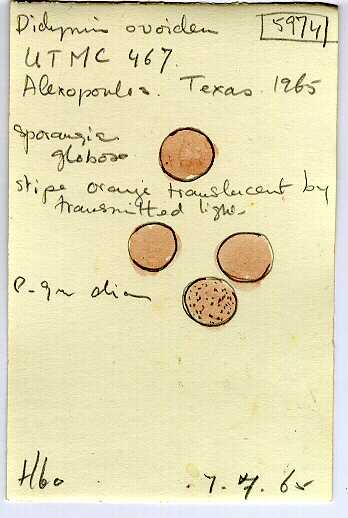 Didymium ovoideum [5974]
UTMC 467.
Alexopoulos. Texas 1965
Sporangia
globose
stipe orange translucent by
transmitted light.
diam
Hbo 7.7.65